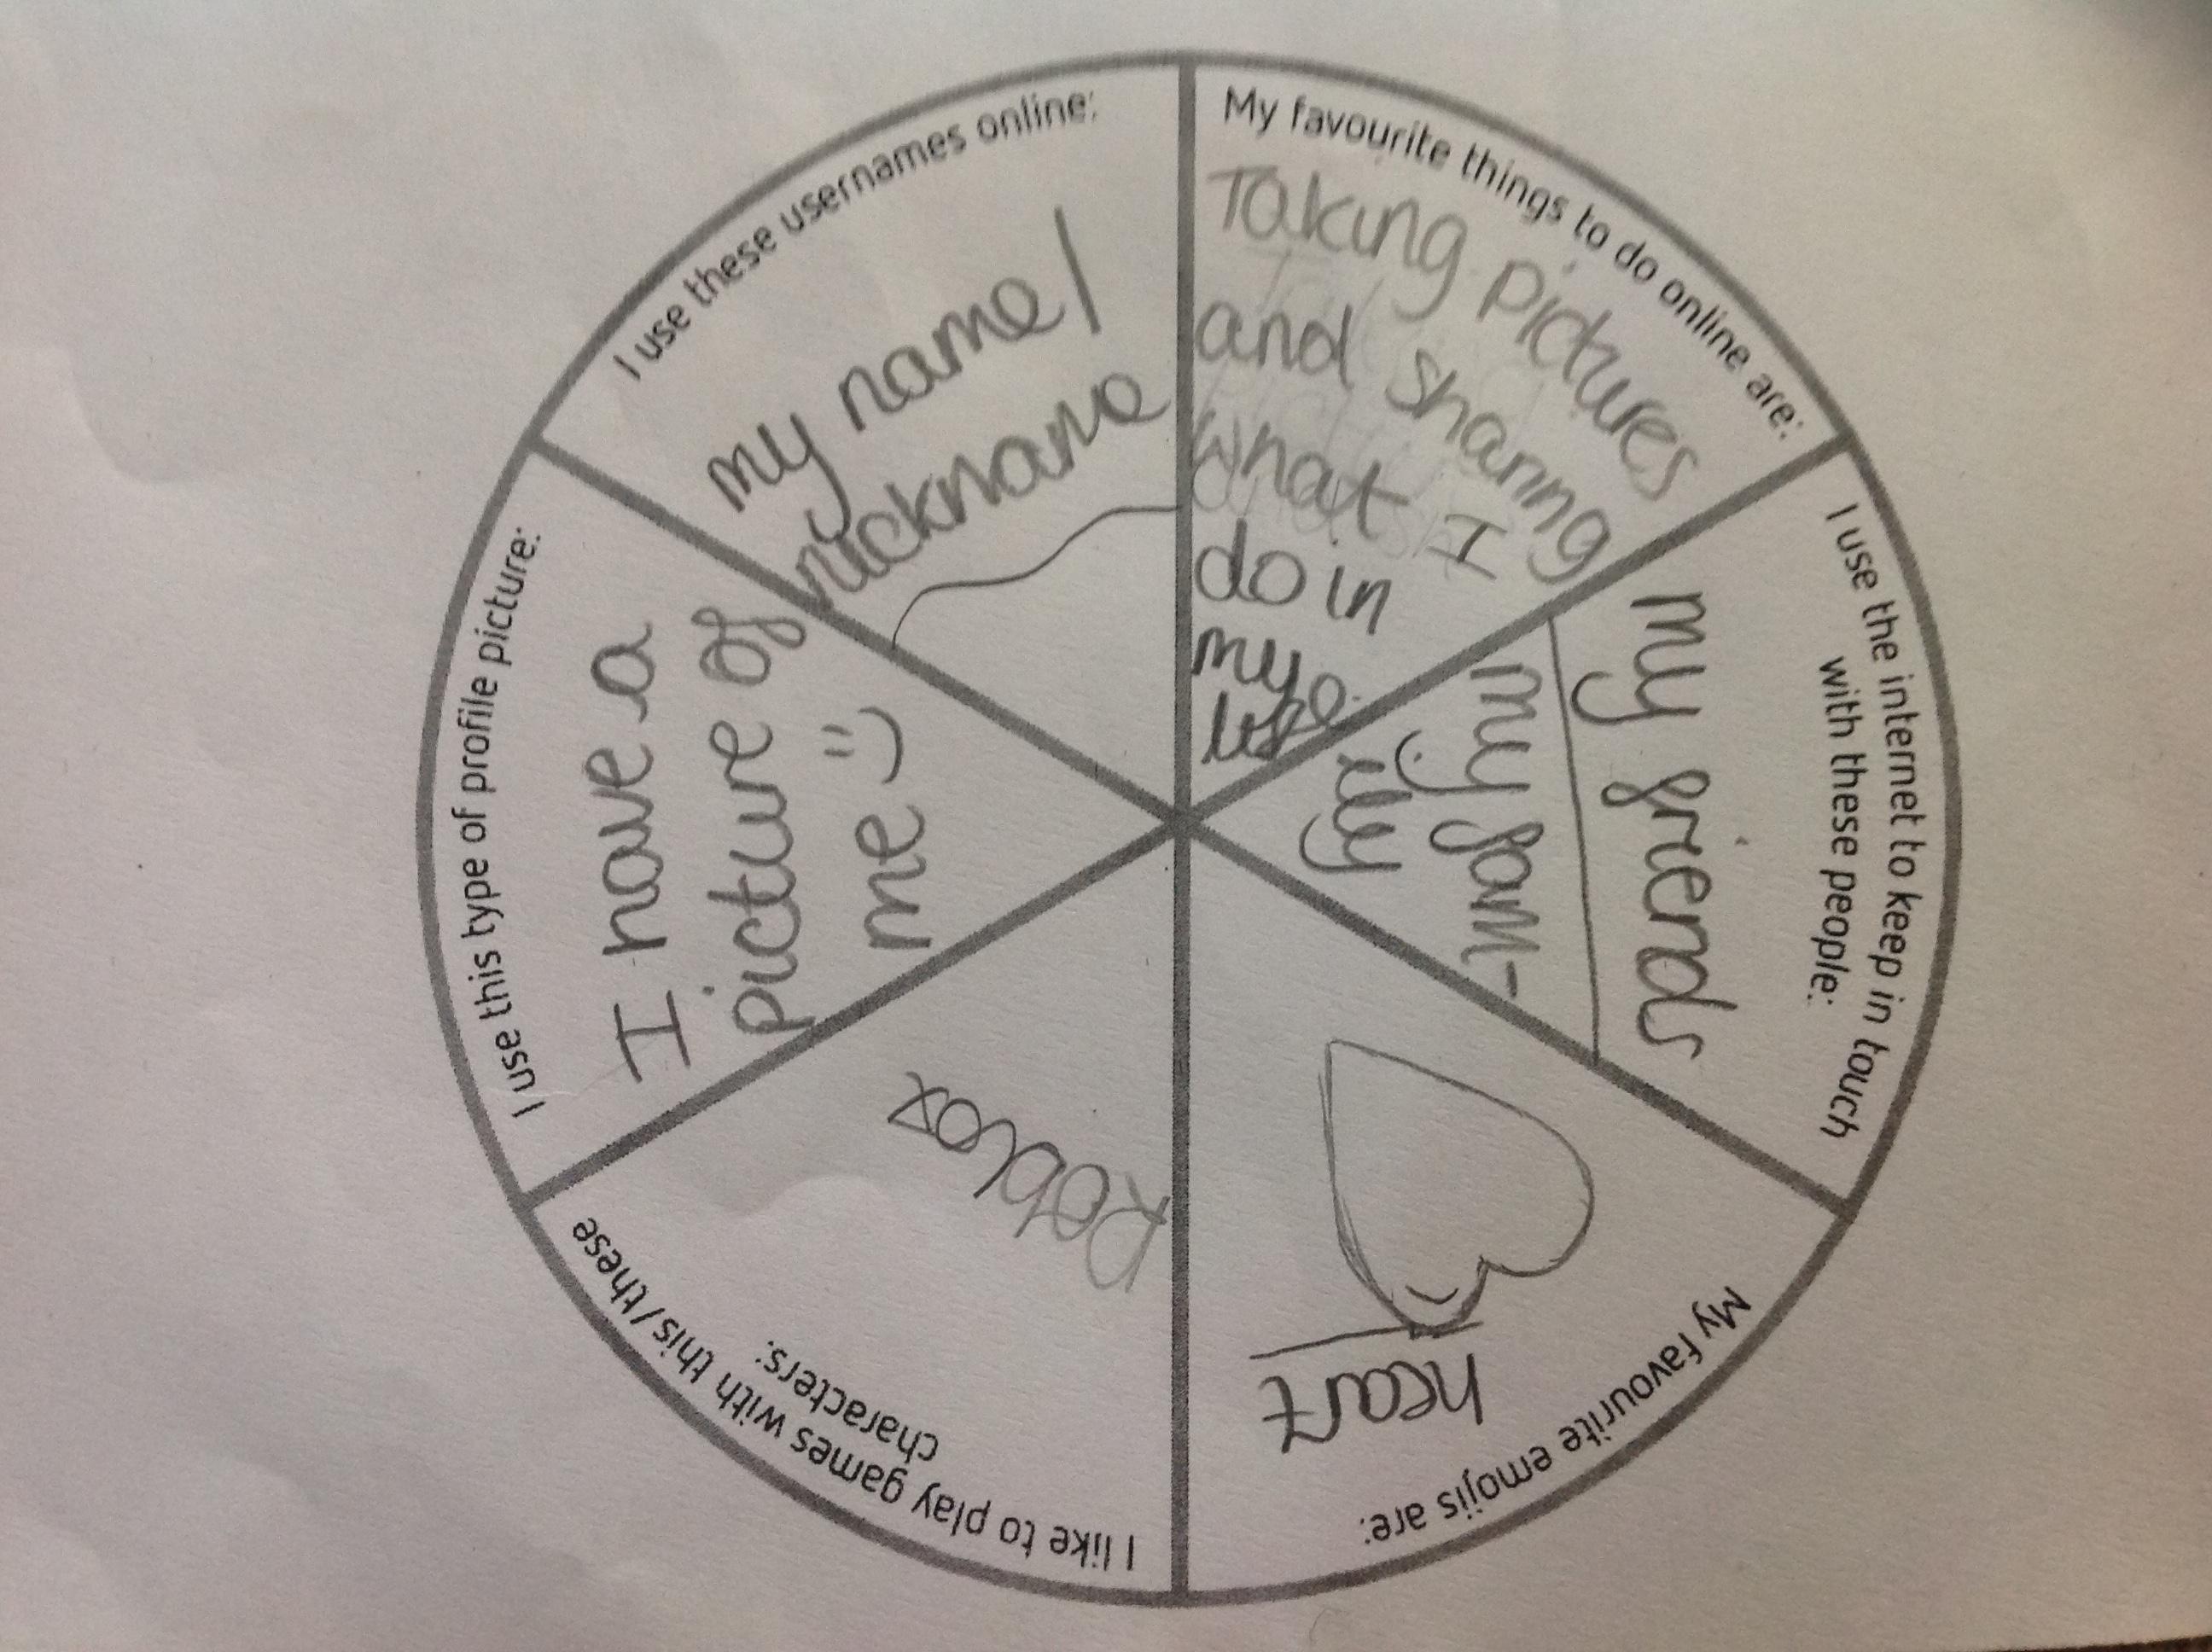 My favourite things to do online are:
Taking pictures
and sharing
what I
do in
my
life
I use the internet to keep in touch
with these people:
my friends
my fam-
ily
:)
My favourite emojis are:
heart
I like to play games with this/these
characters:
Roblox
I use this type of profile picture:
I have a
picture of
me :)
I use these usernames online:
my name/
nickname